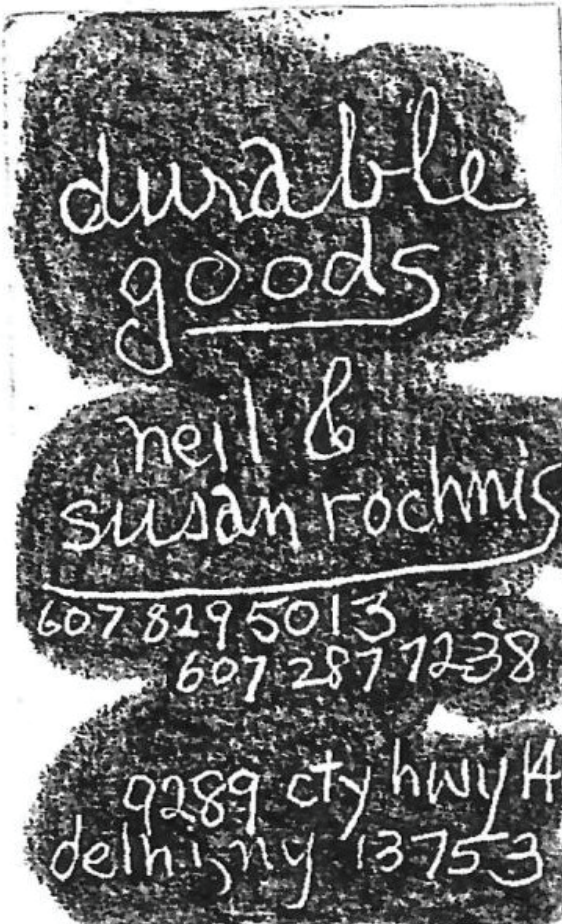 durable
goods
neil &
susan rochmis
607 829 5013
607 287 7238
9289 cty hwy 14
delhi, ny 13753